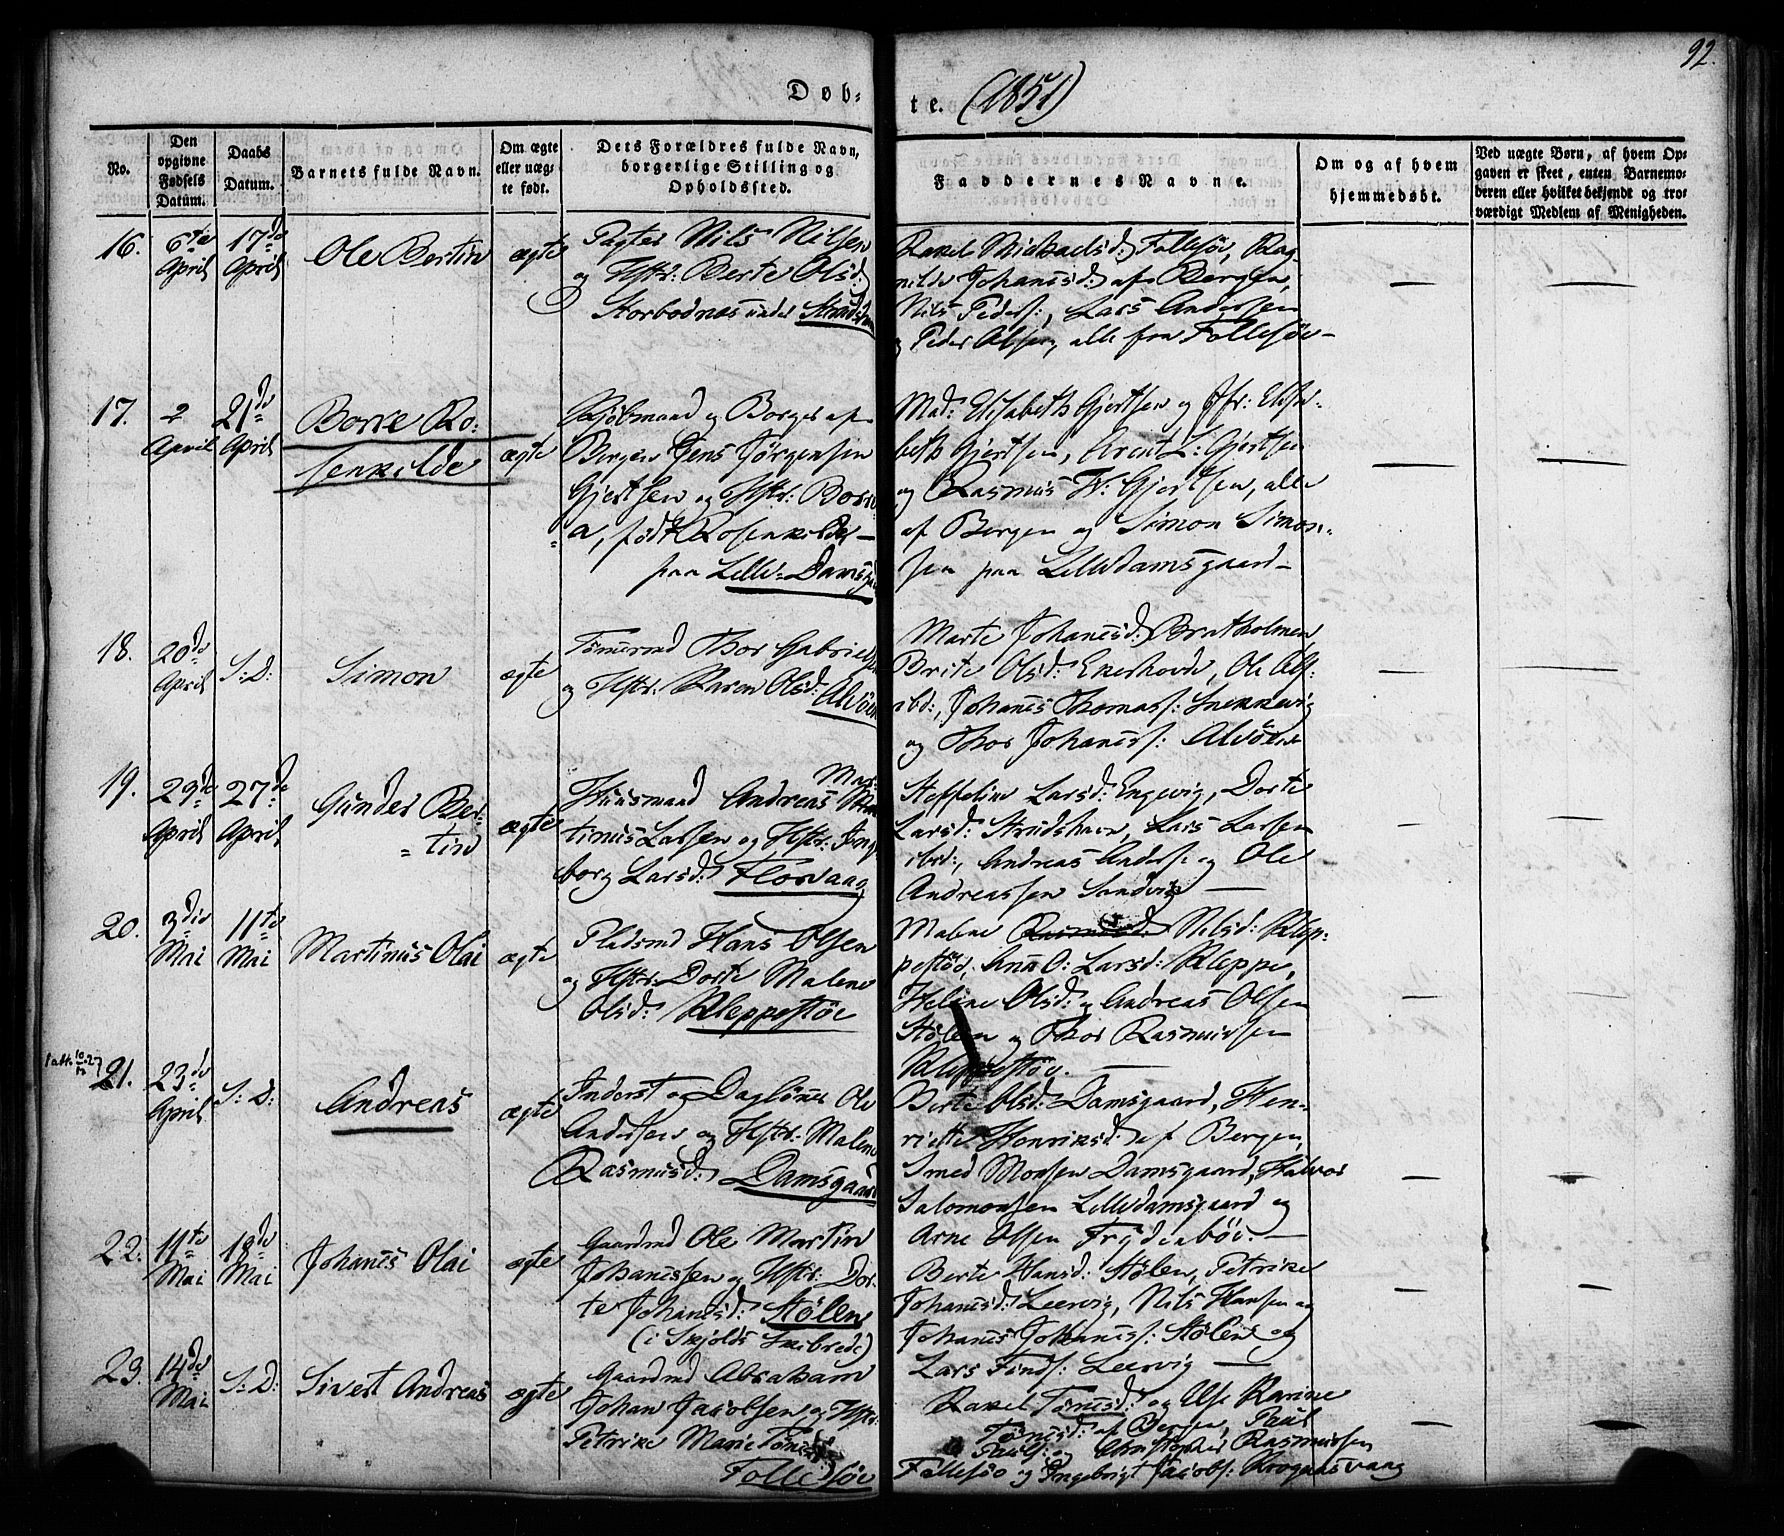 92.
Døb-
te. (1851)
No.
Den opgivne Fødsels Datum.
Daabs Datum.
Barnets fulde Navn.
Om ægte eller uægte født.
Dets Forældres fulde Navn, borgerlige Stilling og Opholdssted.
Faddernes Navne.
Om og af hvem hjemmedøbt.
Ved uægte Børn, af hvem Opgaven er skeet, enten Barnemoderen eller hvilket bekjendt og troværdigt Medlem af Menigheden.
16. 6te April 17de April Ole Bertin ægte
Pagter Nils Nilsen
og Hstr: Berte Olsd:
Storbodnes under
Rakel Michaelsd: Follesöe, Rag-
nilde Johanesd: af Bergen,
Nils Peders:, Lars Andersen
og Peder Olsen, alle fra Follesöe —
17. 2 April 21de April Borre Ro:
senkilde ægte
Kjöbmand og Borger af
Bergen Jens Jörgensen
Gjertsen og Hstr: Borre
a, född Rosenkilde —
paa Lille-Damsgaa
Mad: Elisabeth Gjertsen og Jfr: Elisa-
beth Gjertsen, Arent L: Gjertsen
og Rasmus W: Gjertsen, alle
af Bergen og Simon Simon-
sen paa Lilledamsgaard —
18. 20de April S: D: Simon ægte
Tömermd Thor Gabriels
og Hstr: Karen Olsd: Alvöen
Marte Johanesd: Bratholmen,
Brite Olsd: Ekerhovd, Ole Ols:
ibd:, Johanes Thomass: Snekkevig
og Thor Johaness: Alvöen
19. 29de April 27de April Gunder Ber-
tin ægte
Huusmand Andreas Mar-
tinus Larsen og Hstr: Inge
borg Larsd: Florvaag
Steffeline Larsd: Engevig, Dorte
Larsd: Strudshavn, Lars Larsen
ibd:, Andreas Anders: og Ole
Andreassen Sandvig —
20. 3die Mai 11te Mai Martinus Olai ægte
Pladsmd Hans Olsen
og Hstr: Dorte Malene
Olsd: Kleppestöe
Malene Nilsd: Klep-
pestöe, Anna O: Larsd: Kleppe,
Helene Olsd: og Andreas Olsen
Stölen og Thor Rasmussen
Kleppestöe. —
21. 23de April S: D: Andreas ægte
Inderst og Daglönner Ole
Andersen og Hstr: Malene
Rasmusd: Damsgaard
Berte Olsd: Damsgaard, Hen-
riette Henriksd: af Bergen,
Smed Monsen Damsgaard, Halvor
Salomonsen Lilledamsgaard og
Arne Olsen Frydenböe. —
22. 11te Mai 18de Mai Johanes Olai ægte
Gaardmd Ole Martin
Johanessen og Hstr: Dor-
te Johanesd: Stölen
(i Skjolds Skibrede)
Berte Hansd: Stölen, Petrike
Johanesd: Leervig, Nils Hansen og
Johanes Johaness: Stölen og
Lars Finds: Leervig —
23. 14de Mai S: D: Sivert Andreas ægte
Gaardmd Abraham
Johan Jacobsen og Hstr:
Petrike Marie
Follesöe
Rakel Tönnesd: og Else Karine
Tönnesd: af Bergen, Paul
Pauls: og Christopher Rasmussen
Follesöe og Ingebrigt Jacobs: Krogaasvaag